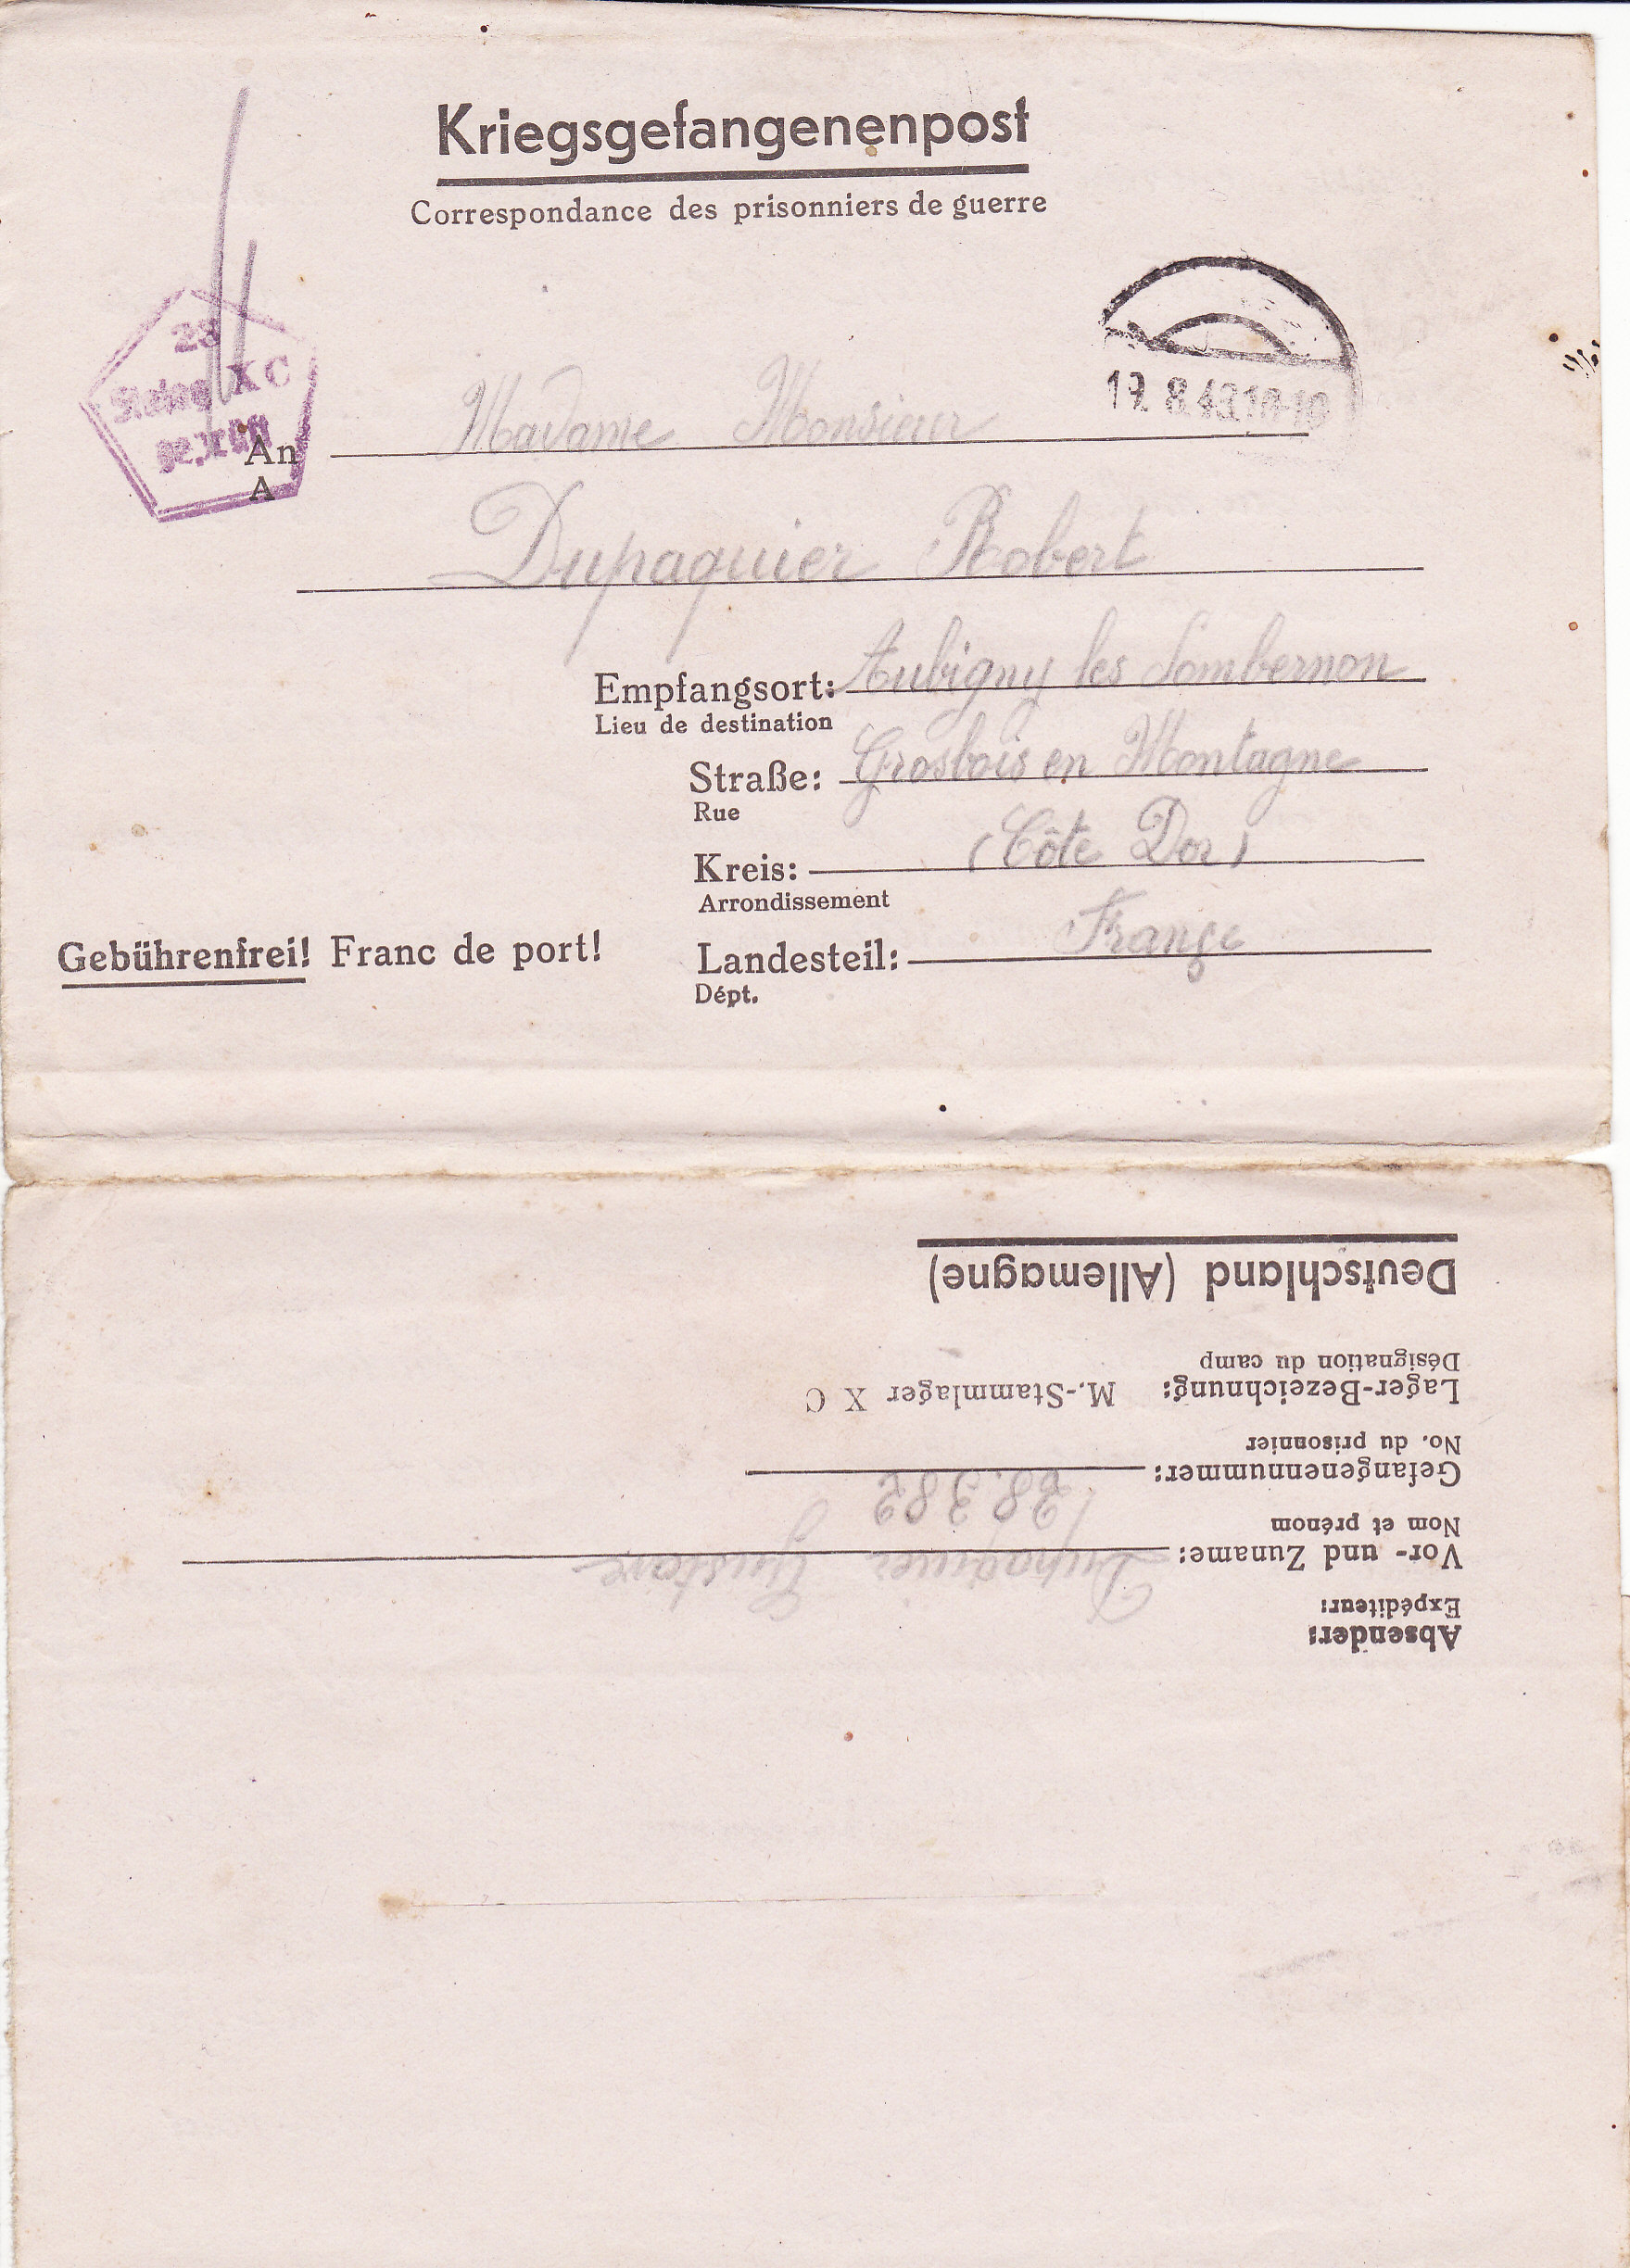 Kriegsgefangenenpost
Correspondance des prisonniers de guerre
28
Stalag X C
geprüft
19.8.43.18-19
An Madame Monsieur
A
Dupaquier Robert
Empfangsort: Aubigny les Sombernon
Lieu de destination
Straße: Grosbois en Montagne
Rue
Kreis: (Côte Dor)
Arrondissement
Gebührenfrei! Franc de port!
Landesteil: France
Dépt.
Absender:
Expéditeur:
Vor- und Zuname: Dupaquier Gustave
Nom et prénom
Gefangenennummer: 38.382
No. du prisonnier
Lager-Bezeichnung: M.-Stammlager X C
Désignation du camp
Deutschland (Allemagne)